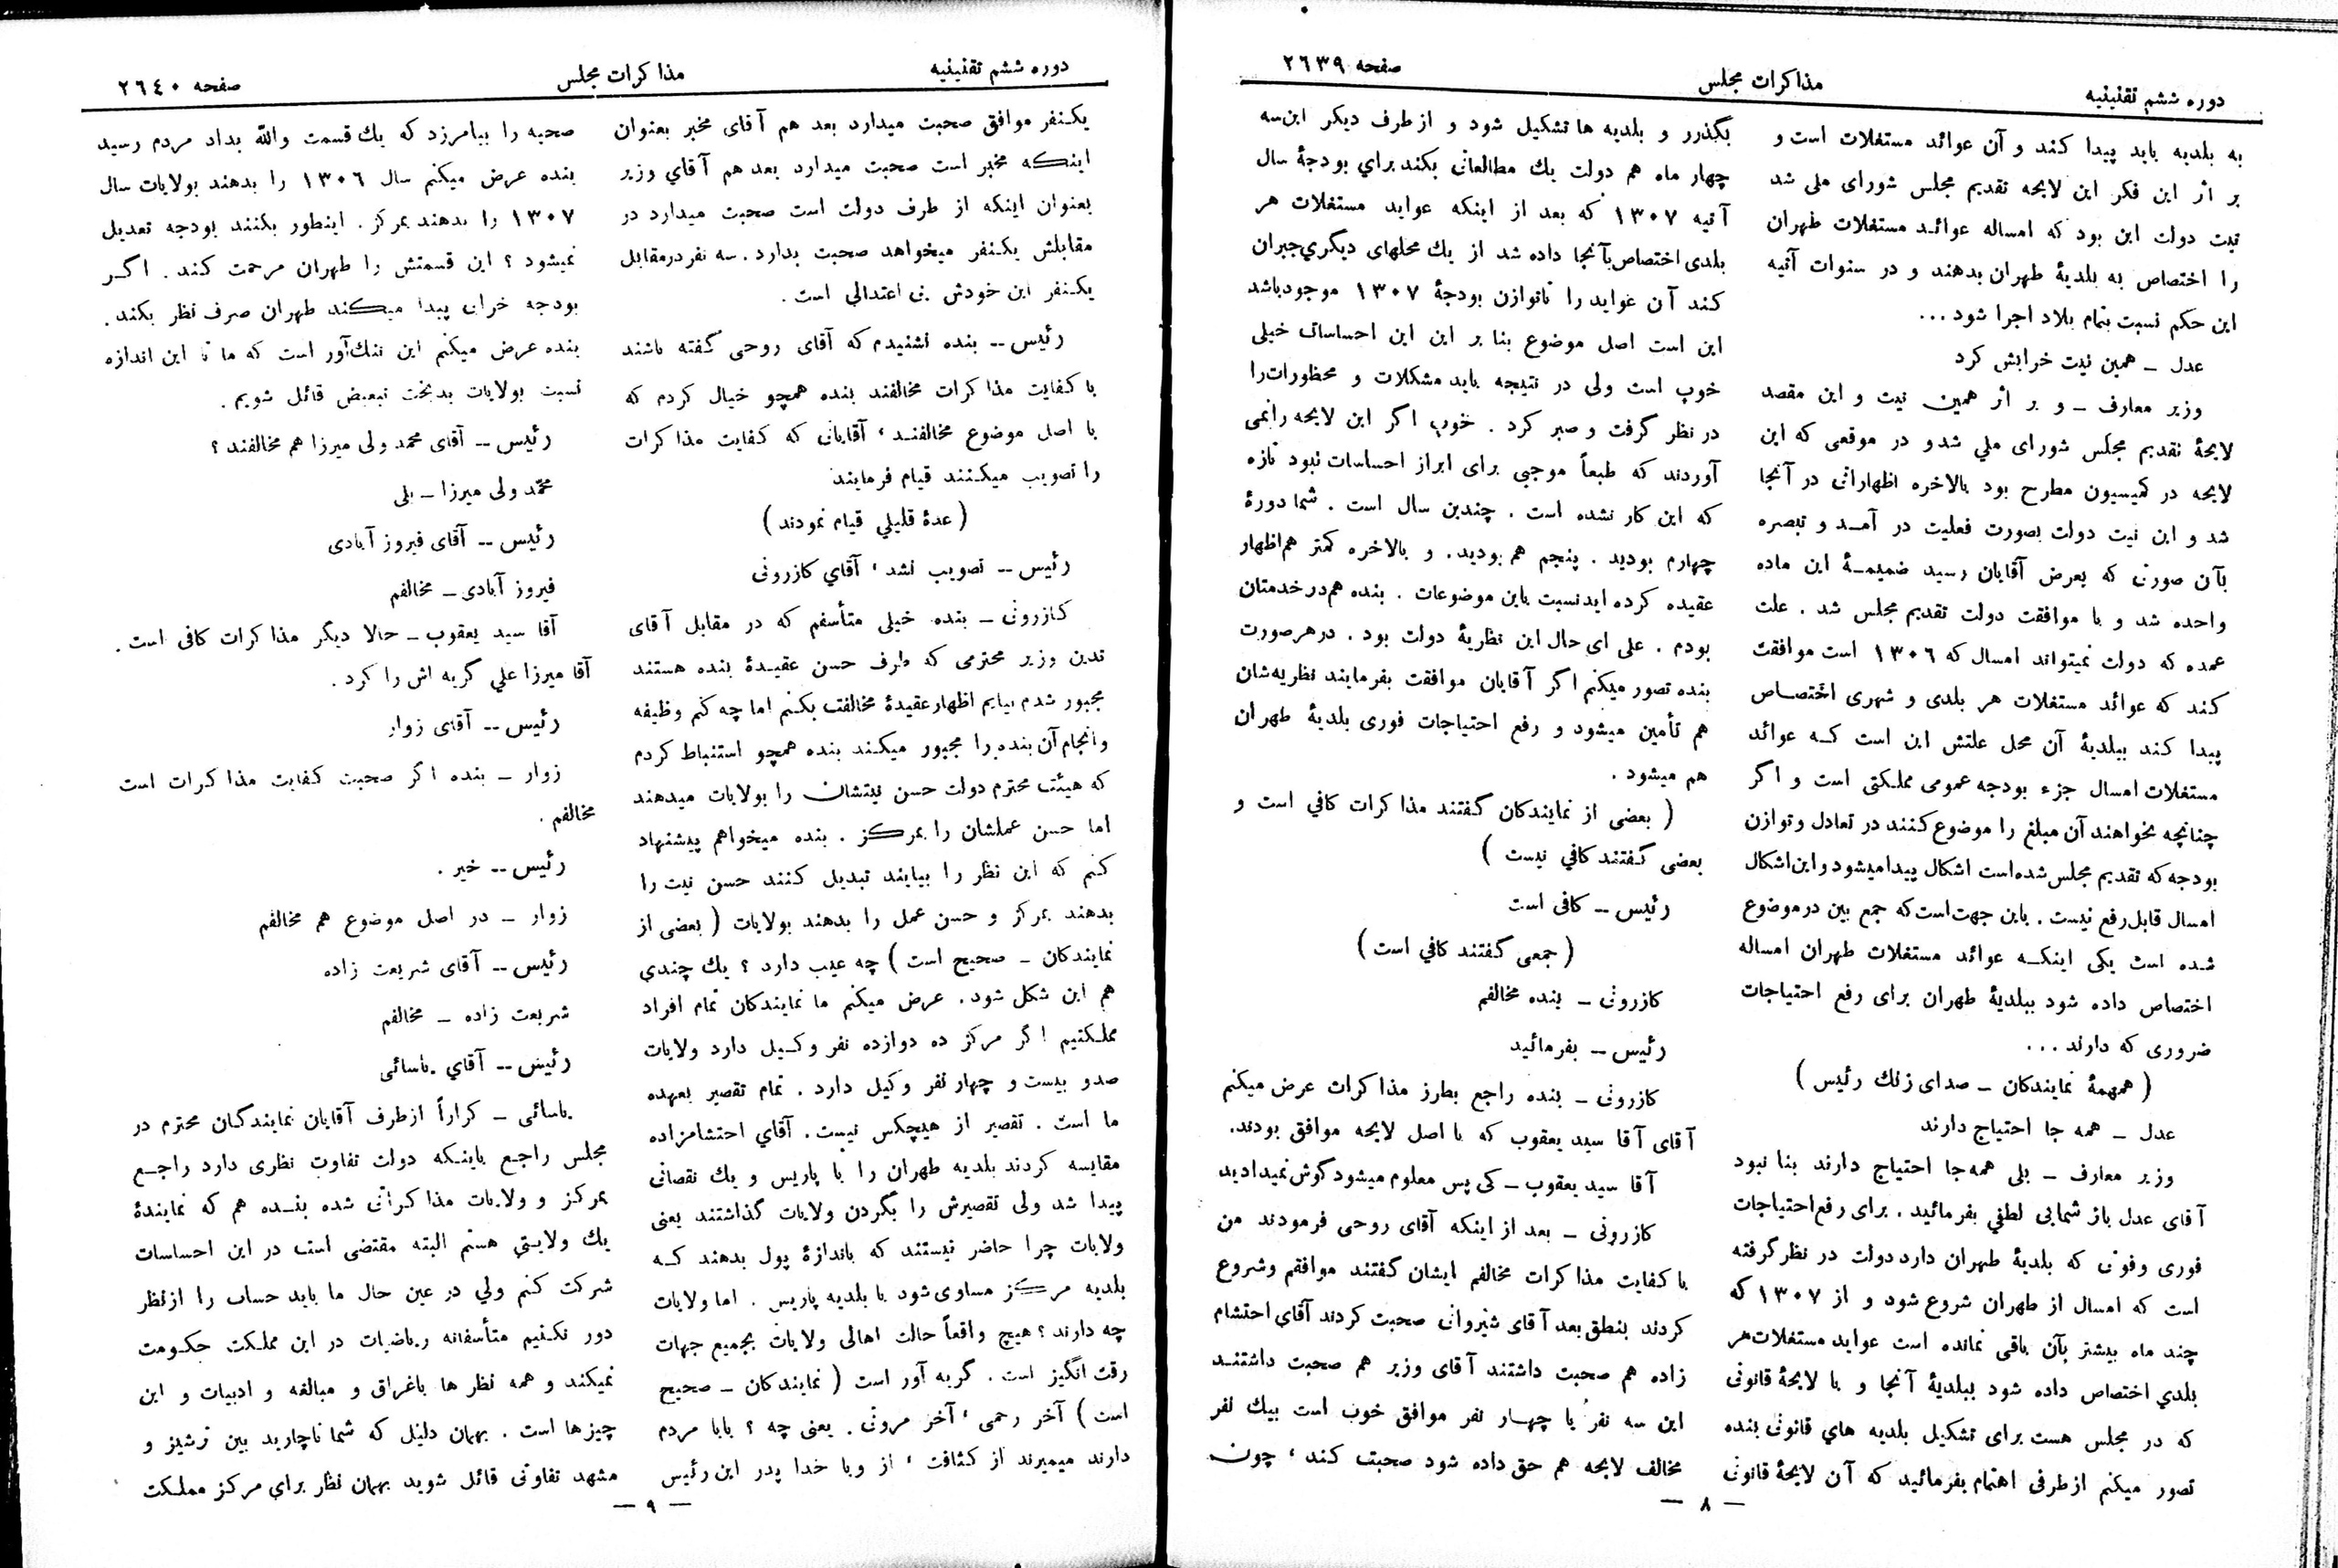 دوره ششم تقنینیه
مذاکرات مجلس
صفحه ۲٦۳۹
به بلدیه باید پیدا کند و آن عوائد مستغلات است و
بر اثر این فکر این لایحه تقدیم مجلس شورای ملی شد
نیت دولت این بود که امساله عوائد مستغلات طهران
را اختصاص به بلدیهٔ طهران بدهند و در سنوات آتیه
این حکم نسبت بتمام بلاد اجرا شود ...
عدل ــ همین نیت خرابش کرد
وزیر معارف ــ و بر اثر همین نیت و این مقصد
لایحهٔ تقدیم مجلس شورای ملي شد و در موقعی که این
لایحه در کمیسیون مطرح بود بالاخره اظهاراتی در آنجا
شد و این نیت دولت بصورت فعلیت در آمد و تبصره
بآن صورتی که بعرض آقایان رسید ضمیمهٔ این ماده
واحده شد و با موافقت دولت تقدیم مجلس شد . علت
عمده که دولت نمیتواند امسال که ۱۳۰٦ است موافقت
کند که عوائد مستغلات هر بلدی و شهری اختصاص
پیدا کند ببلدیهٔ آن محل علتش این است که عوائد
مستغلات امسال جزء بودجه عمومی مملکتی است و اگر
چنانچه بخواهند آن مبلغ را موضوع کنند در تعادل و توازن
بودجه که تقدیم مجلس شده است اشکال پیدا میشود و این اشکال
امسال قابل رفع نیست . باین جهت است که جمع بین در موضوع
شده است یکی اینکه عوائد مستغلات طهران امساله
اختصاص داده شود ببلدیهٔ طهران برای رفع احتیاجات
ضروری که دارند ...
( همهمهٔ نمایندکان ــ صدای زنك رئیس )
عدل ــ همه جا احتیاج دارند
وزیر معارف ــ بلی همه جا احتیاج دارند بنا نبود
آقای عدل باز شمابی لطفي بفرمائید . برای رفع احتیاجات
فوری وفوتی که بلدیهٔ طهران دارد دولت در نظر گرفته
است که امسال از طهران شروع شود و از ۱۳۰۷ که
چند ماه بیشتر بآن باقی نمانده است عواید مستغلات هر
بلدي اختصاص داده شود ببلدیهٔ آنجا و با لایحهٔ قانونی
که در مجلس هست برای تشکیل بلدیه هاي قانونی بنده
تصور میکنم از طرفی اهتمام بفرمائید که آن لایحهٔ قانونی
بگذرد و بلدیه ها تشکیل شود و از طرف دیگر این سه
چهار ماه هم دولت یك مطالعاتی بکند براي بودجهٔ سال
آتیه ۱۳۰۷ که بعد از اینکه عواید مستغلات هر
بلدی اختصاص بآنجا داده شد از یك محلهای دیگري جبران
کند آن عواید را تاتوازن بودجهٔ ۱۳۰۷ موجود باشد
این است اصل موضوع بنا بر این این احساسات خیلی
خوب است ولی در نتیجه باید مشکلات و محظورات را
در نظر گرفت و صبر کرد . خوب اگر این لایحه را نمی
آوردند که طبعاً موجبی برای ابراز احساسات نبود تازه
که این کار نشده است . چندین سال است . شما دورهٔ
چهارم بودید . پنجم هم بودید . و بالاخره کمتر هم اظهار
عقیده کرده اید نسبت باین موضوعات . بنده هم در خدمتتان
بودم . علی ای حال این نظریهٔ دولت بود . در هر صورت
بنده تصور میکنم اگر آقایان موافقت بفرمایند نظریه شان
هم تأمین میشود و رفع احتیاجات فوری بلدیهٔ طهران
هم میشود .
( بعضی از نمایندکان گفتند مذاکرات کافي است و
بعضی گفتند کافي نیست )
رئیس ــ کافی است
( جمعی گفتند کافي است )
کازرونی ــ بنده مخالفم
رئیس ــ بفرمائید
کازرونی ــ بنده راجع بطرز مذاکرات عرض میکنم
آقای آقا سید یعقوب که با اصل لایحه موافق بودند.
آقا سید یعقوب ــ کی پس معلوم میشود گوش نمیدادید
کازرونی ــ بعد از اینکه آقای روحی فرمودند من
با کفایت مذاکرات مخالفم ایشان گفتند موافقم وشروع
کردند بنطق بعد آقای شیروانی صحبت کردند آقای احتشام
زاده هم صحبت داشتند آقای وزیر هم صحبت داشتند
این سه نفر یا چهار نفر موافق خوب است بیك نفر
مخالف لایحه هم حق داده شود صحبت کند ، چون
ــ ۸ ــ
دوره ششم تقنینیه
مذاکرات مجلس
صفحه ۲٦٤۰
یکنفر موافق صحبت میدارد بعد هم آقای مخبر بعنوان
اینکه مخبر است صحبت میدارد بعد هم آقاي وزیر
بعنوان اینکه از طرف دولت است صحبت میدارد در
مقابلش یکنفر میخواهد صحبت بدارد . سه نفر در مقابل
یکنفر این خودش بی اعتدالی است .
رئیس ــ بنده نشنیدم که آقای روحی گفته باشند
با کفایت مذاکرات مخالفند بنده همچو خیال کردم که
با اصل موضوع مخالفند ، آقایانی که کفایت مذاکرات
را تصویب میکنند قیام فرمایند
( عدهٔ قلیلي قیام نمودند )
رئیس ــ تصویب نشد ، آقاي کازرونی
کازرونی ــ بنده خیلی متأسفم که در مقابل آقای
تدین وزیر محترمی که طرف حسن عقیدهٔ بنده هستند
مجبور شدم بیایم اظهار عقیدهٔ مخالفت بکنم اما چه کنم وظیفه
وانجام آن بنده را مجبور میکند بنده همچو استنباط کردم
که هیئت محترم دولت حسن نیتشان را بولایات میدهند
اما حسن عملشان را بمرکز . بنده میخواهم پیشنهاد
کنم که این نظر را بیایند تبدیل کنند حسن نیت را
بدهند بمرکز و حسن عمل را بدهند بولایات ( بعضی از
نمایندکان ــ صحیح است ) چه عیب دارد ؟ یك چندي
هم این شکل شود . عرض میکنم ما نمایندکان تمام افراد
مملکتیم اگر مرکز ده دوازده نفر وکیل دارد ولایات
صدو بیست و چهار نفر وکیل دارد . تمام تقصیر بعهده
ما است . تقصیر از هیچکس نیست . آقاي احتشامزاده
مقایسه کردند بلدیه طهران را با پاریس و یك نقصانی
پیدا شد ولی تقصیرش را بگردن ولایات گذاشتند یعنی
ولایات چرا حاضر نیستند که باندازهٔ پول بدهند که
بلدیه مرکز مساوی شود با بلدیه پاریس . اما ولایات
چه دارند ؟ هیچ واقعاً حالت اهالی ولایات بجمیع جهات
رقت انگیز است . گریه آور است ( نمایندکان ــ صحیح
است ) آخر رحمی ، آخر مروتی . یعنی چه ؟ بابا مردم
دارند میمیرند از کثافت ، از وبا خدا پدر این رئیس
صحیه را بیامرزد که یك قسمت والله بداد مردم رسید
بنده عرض میکنم سال ۱۳۰٦ را بدهند بولایات سال
۱۳۰۷ را بدهند بمرکز . اینطور بکنند بودجه تعدیل
نمیشود ؟ این قسمتش را طهران مرحمت کند . اگر
بودجه خرابی پیدا میکند طهران صرف نظر بکند .
بنده عرض میکنم این ننك آور است که ما تا این اندازه
نسبت بولایات بدبخت تبعیض قائل شویم .
رئیس ــ آقای محمد ولی میرزا هم مخالفند ؟
محمد ولی میرزا ــ بلی
رئیس ــ آقای فیروز آبادی
فیروز آبادی ــ مخالفم
آقا سید یعقوب ــ حالا دیگر مذاکرات کافی است .
آقا میرزا علي گریه اش را کرد .
رئیس ــ آقای زوار
زوار ــ بنده اگر صحبت کفایت مذاکرات است
مخالفم .
رئیس ــ خیر .
زوار ــ در اصل موضوع هم مخالفم
رئیس ــ آقای شریعت زاده
شریعت زاده ــ مخالفم
رئیس ــ آقاي یاسائی
یاسائی ــ کراراً از طرف آقایان نمایندگان محترم در
مجلس راجع باینکه دولت تفاوت نظری دارد راجع
بمرکز و ولایات مذاکراتی شده بنده هم که نمایندهٔ
یك ولایتي هستم البته مقتضی است در این احساسات
شرکت کنم ولي در عین حال ما باید حساب را از نظر
دور نکنیم متأسفانه ریاضیات در این مملکت حکومت
نمیکند و همه نظر ها باغراق و مبالغه و ادبیات و این
چیزها است . بهمان دلیل که شما ناچارید بین ترشیز و
مشهد تفاوتی قائل شوید بهمان نظر برای مرکز مملکت
ــ ۹ ــ